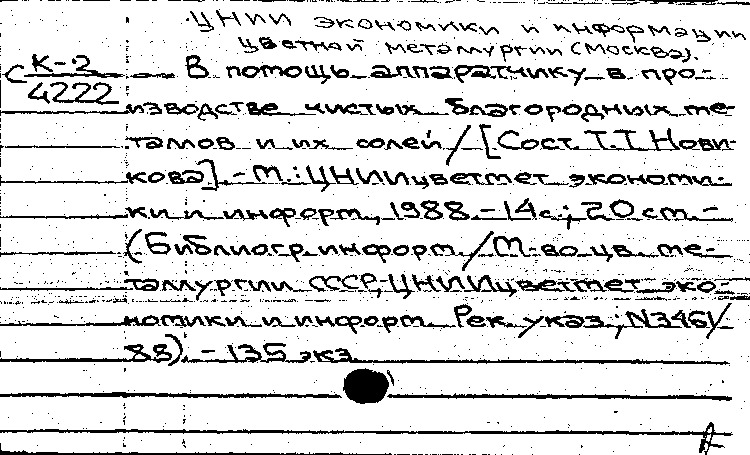 ЦНИИ экономики и информации
цветной металлургии (Москва).
С К-2
4222
В помощь аппаратчику в про-
изводстве чистых благородных ме-
таллов и их солей / [Сост. Т.Т. Нови-
кова]. - М.: ЦНИИцветмет экономи-
ки и информ., 1988. - 14с.; 20 см. -
(Библиогр. информ. / М-во цв. ме-
таллургии СССР, ЦНИИцветмет эко-
номики и информ. Рек. указ.; N3461/
88). - 135 экз.